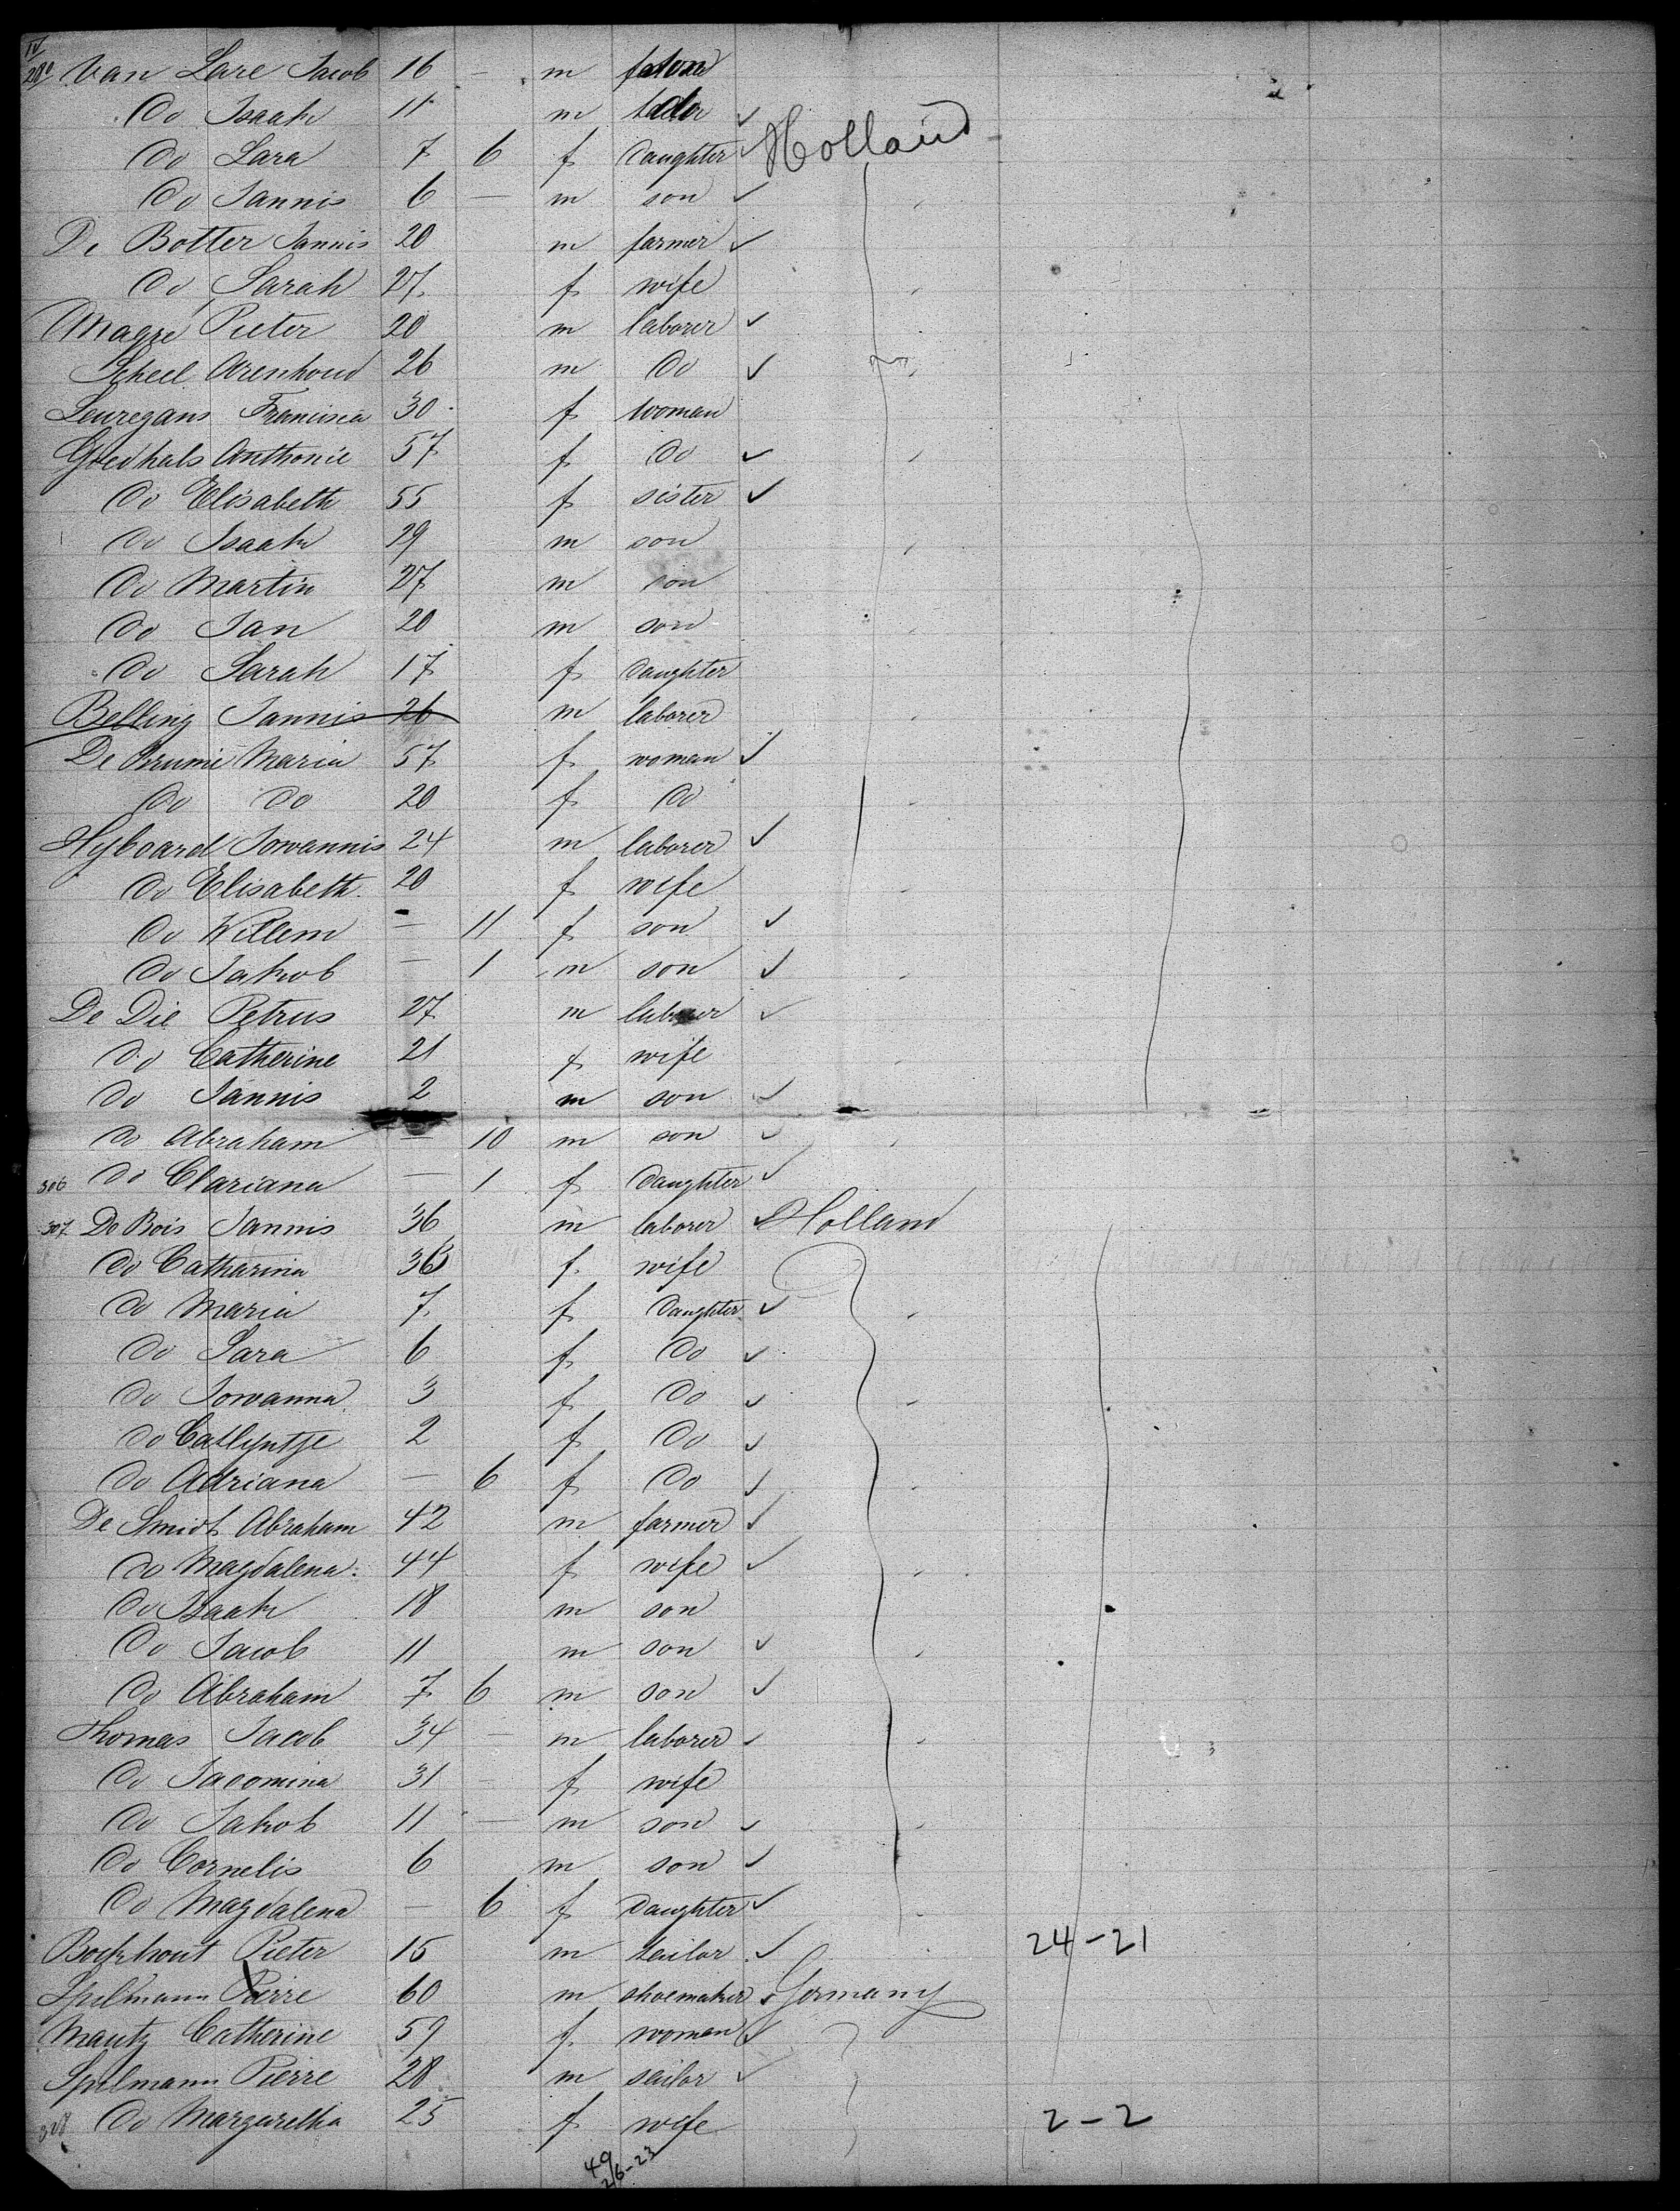 IV
280 Van Lare Jacob 16 — m
Do Isaak 11 m ✓
Do Sara 7 6 f daughter ✓ Holland
Do Jannis 6 — m son ✓
De Botter Jannis 20 m farmer ✓
Do Sarah 27 f wife
Magré Pieter 20 m laborer ✓
Scheel Arenhoud 26 m Do ✓
Leuregans Francisca 30 f woman
Goedhals Anthonie 57 f Do ✓
Do Elisabeth 55 f sister ✓
Do Isaak 29 m son
Do Martin 27 m son
Do Jan 20 m son
Do Sarah 17 f daughter
Belling Jannis 26 m laborer
De Brume Maria 57 f woman ✓
Do Do 20 f Do
Hyboard Jowannis 24 m laborer ✓
Do Elisabeth 20 f wife
Do Willem — 11 f son ✓
Do Jakob — 1 m son ✓
De Die Petrus 27 m laborer ✓
Do Catherine 21 f wife
Do Jannis 2 m son ✓
Do Abraham — 10 m son ✓
306 Do Clariana — 1 f daughter ✓
307 De Bois Jannis 36 m laborer ✓ Holland
Do Catharina 36 f wife
Do Maria 7 f daughter ✓
Do Sara 6 f Do ✓
Do Jowanna 3 f Do ✓
Do Catlyntje 2 f Do ✓
Do Adriana — 6 f Do ✓
De Smidt Abraham 42 m farmer ✓
Do Magdalena 44 f wife ✓
Do Isaak 18 m son
Do Jacob 11 m son ✓
Do Abraham 7 6 m son ✓
Thomas Jacob 34 — m laborer ✓
Do Jacomina 31 — f wife
Do Jakob 11 — m son ✓
Do Cornelis 6 m son ✓
Do Magdalena — 6 f daughter ✓
Bockhout Pieter 15 m tailor ✓ 24-21
Spilmann Pierre 60 m shoemaker ✓ Germany
Mautz Catherine 59 f woman ✓
Spilmann Pierre 28 m sailor ✓
328 Do Margaretha 25 f wife 2-2
49
26-23